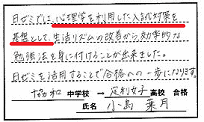 日ゼミでは、心理学を利用した入試対策を
基盤として、生活リズムの改善から効率的な
勉強法を身に付けることが出来ました。
日ゼミを活用することで合格への一歩になります。
協和 中学校 → 足利女子 高校 合格
氏名 小島 葉月